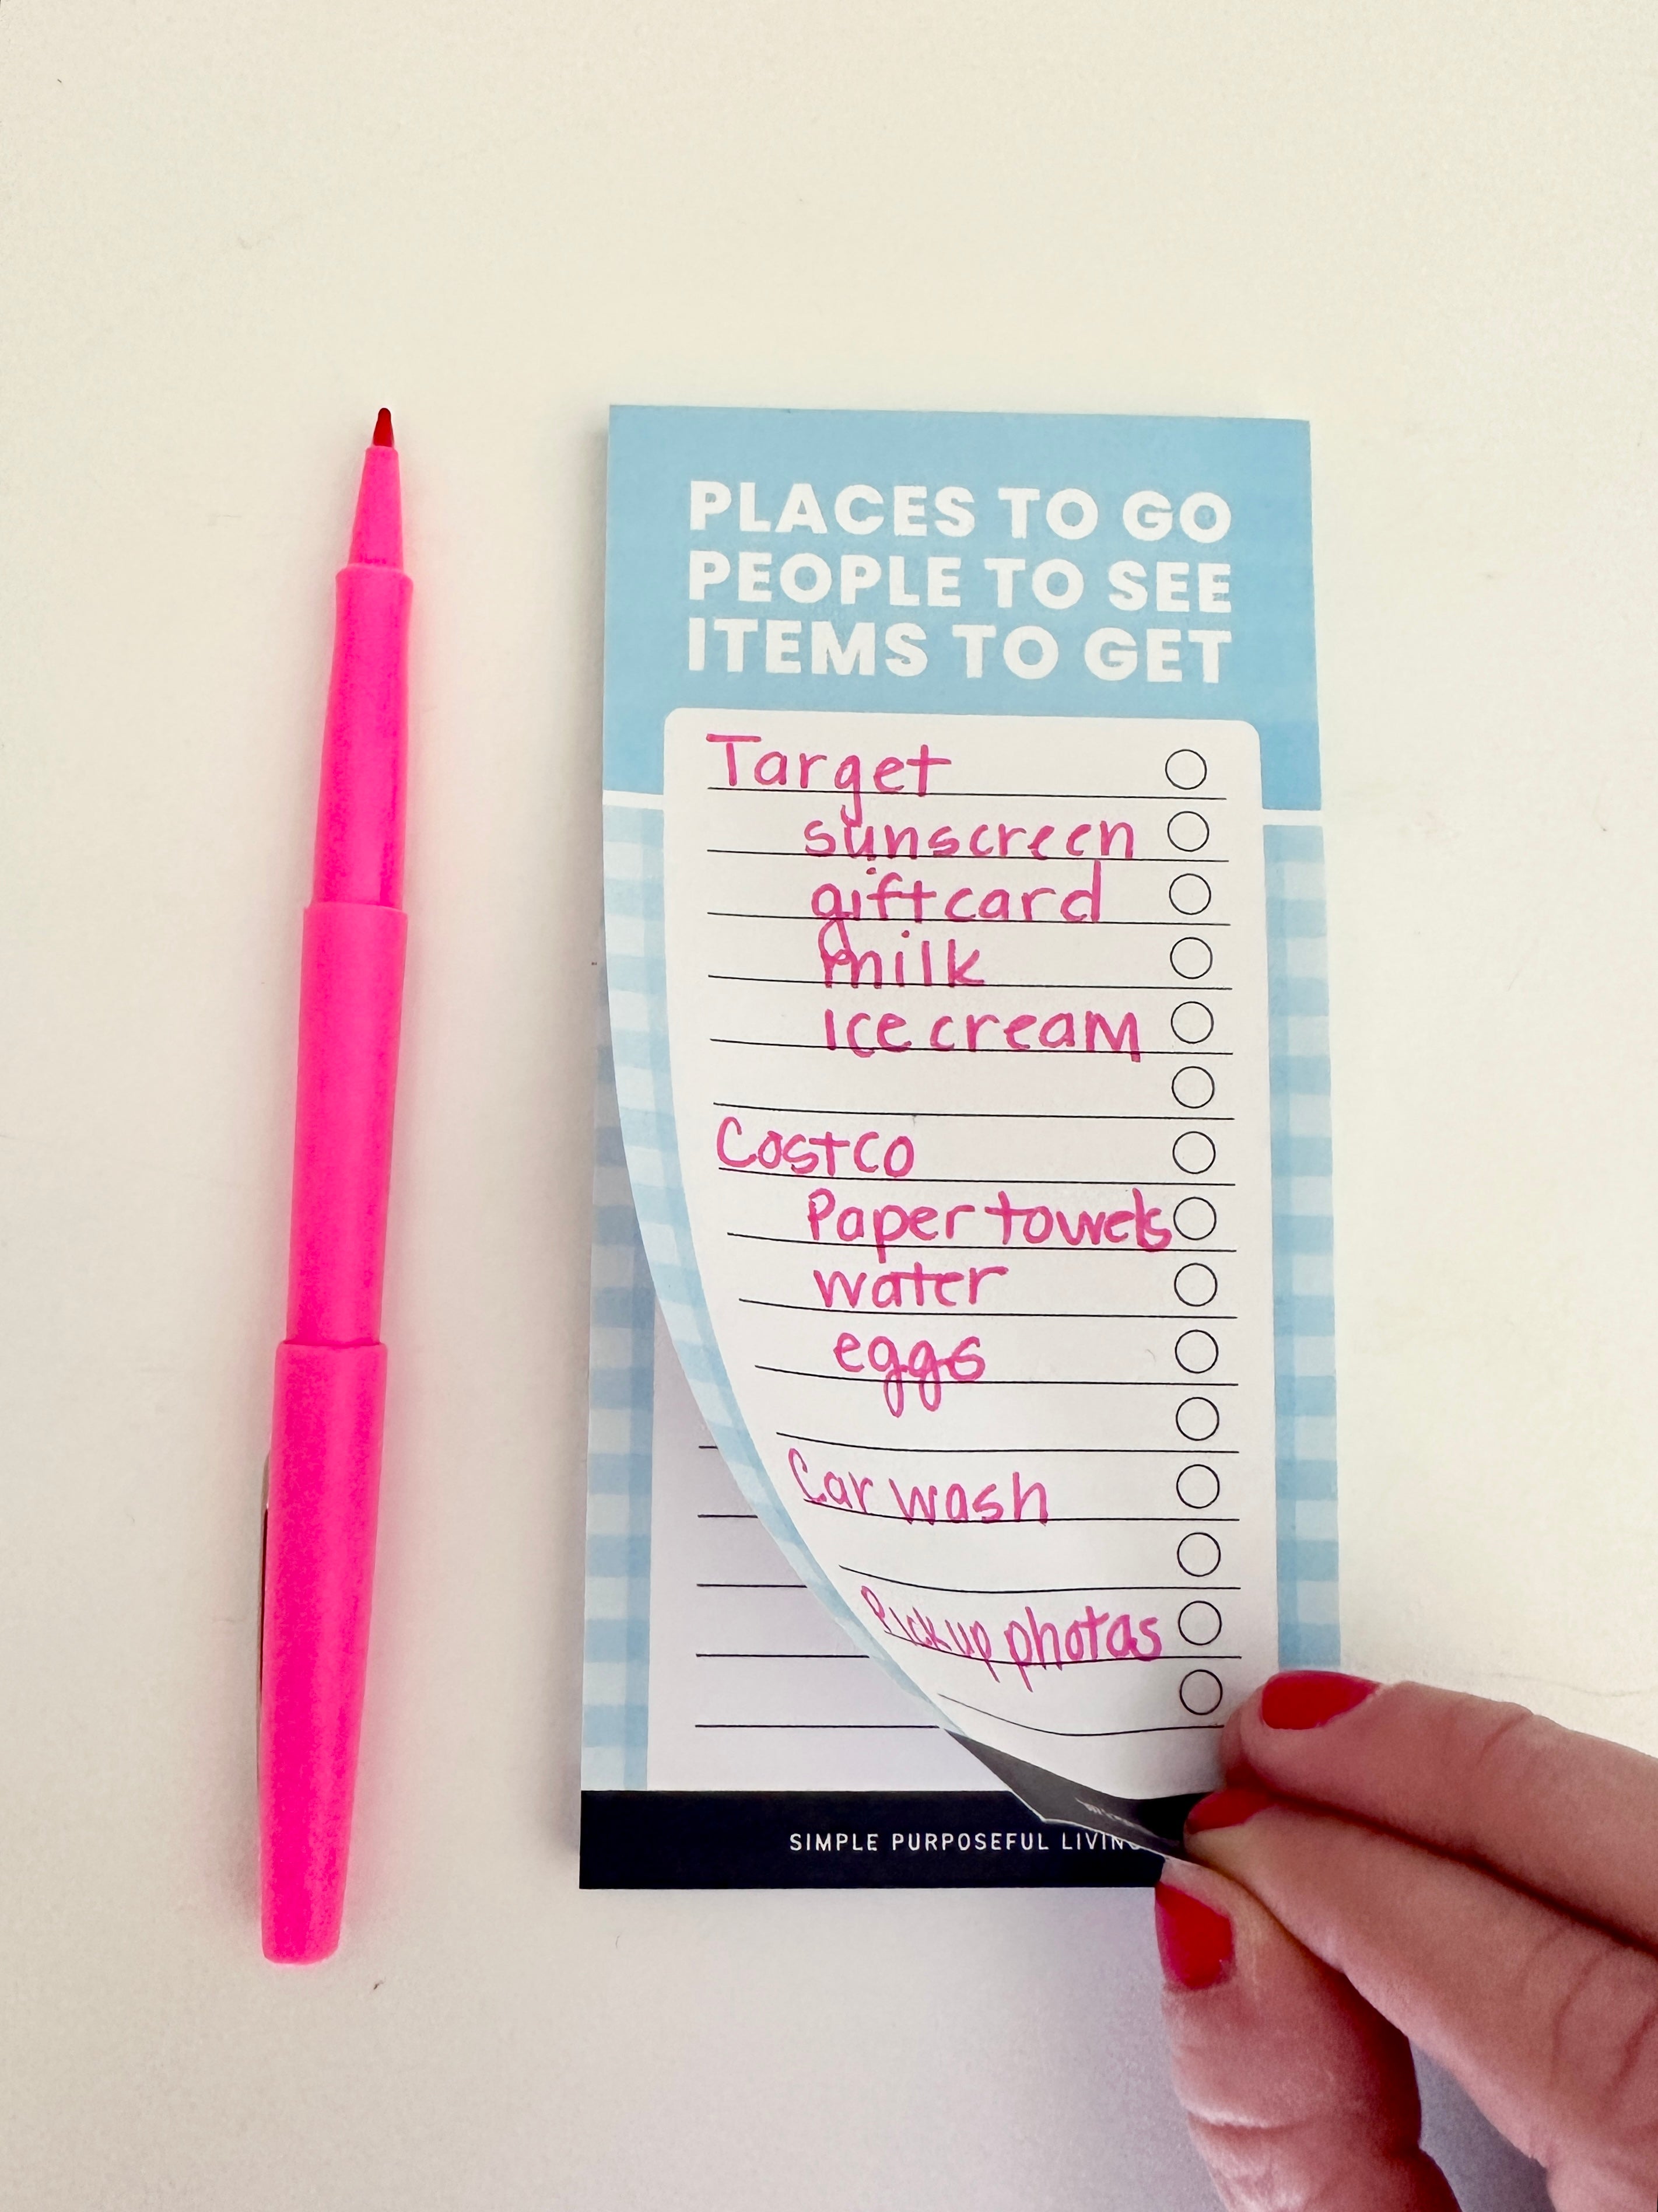 PLACES TO GO
PEOPLE TO SEE
ITEMS TO GET
Target
sunscreen
gift card
milk
Ice cream
Costco
Paper towels
water
eggs
Car wash
Pick up photos
SIMPLE PURPOSEFUL LIVING